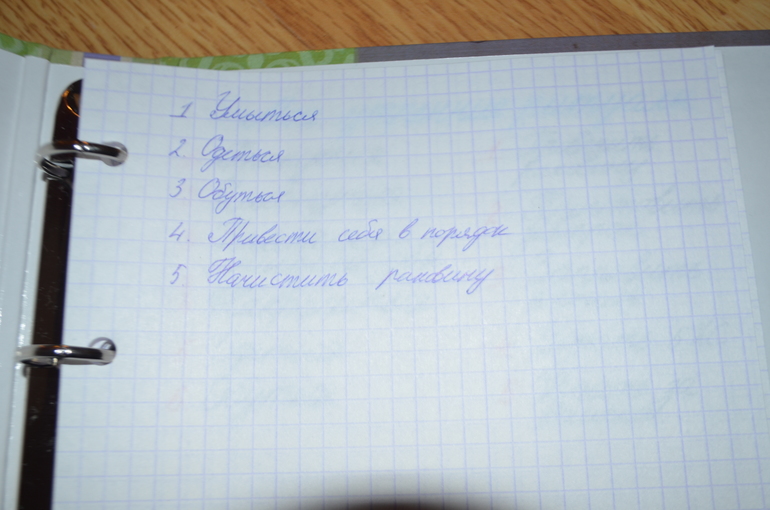 1 Умыться
2. Одеться
3 Обуться
4. Привести себя в порядок
5. Начистить раковину